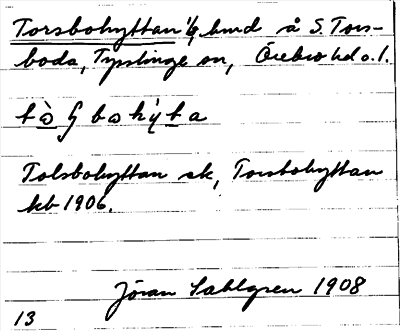 Torsbohyttan 1/4 hmd å S. Tors-
boda, Tysslinge sn, Örebro hd o. l.
tò̱ʂbohýt̠a
Tolsbohyttan sk, Torsbohyttan
kb 1906.
Jöran Sahlgren 1908
13